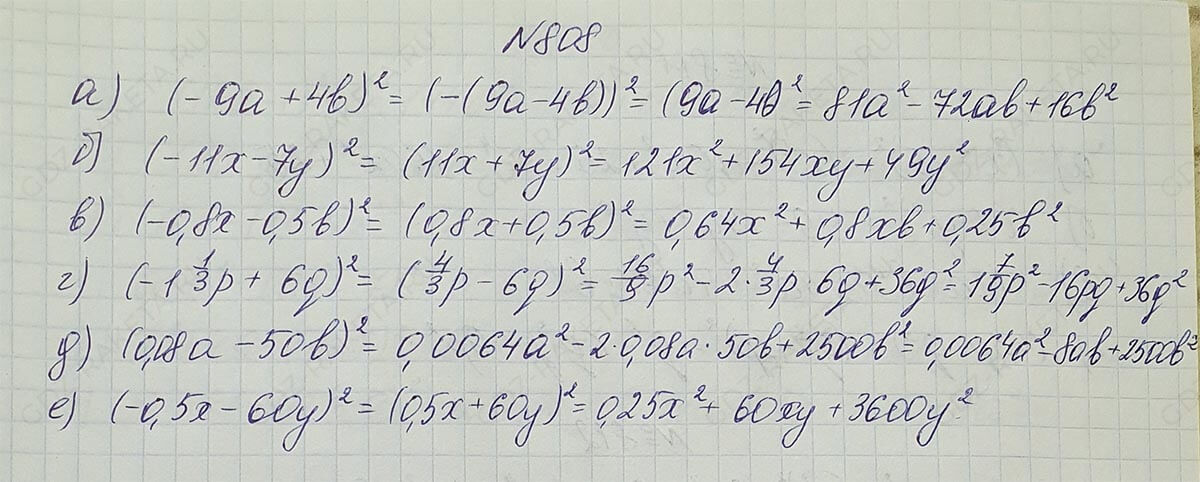 N808
а) (-9a+4b)² = (-(9a-4b))² = (9a-4b)² = 81a² - 72ab + 16b²
б) (-11x-7y)² = (11x+7y)² = 121x² + 154xy + 49y²
в) (-0,8x-0,5b)² = (0,8x+0,5b)² = 0,64x² + 0,8xb + 0,25b²
г) (-1 1/3p + 6q)² = (4/3p - 6q)² = 16/9p² - 2·4/3p·6q + 36q² = 1 7/9p² - 16pq + 36q²
д) (0,08a - 50b)² = 0,0064a² - 2·0,08a·50b + 2500b² = 0,0064a² - 8ab + 2500b²
е) (-0,5x - 60y)² = (0,5x+60y)² = 0,25x² + 60xy + 3600y²